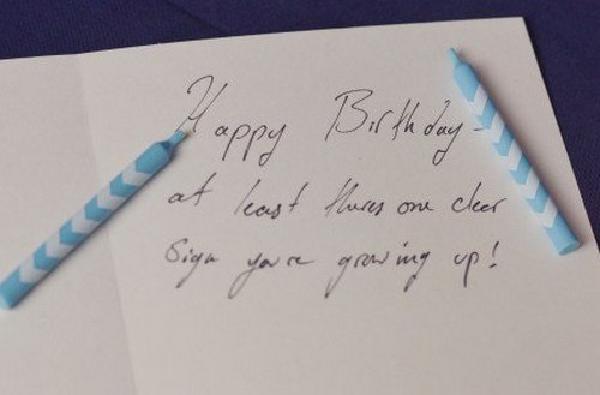 Happy Birthday -
at least theres one clear
Sign you're growing up!